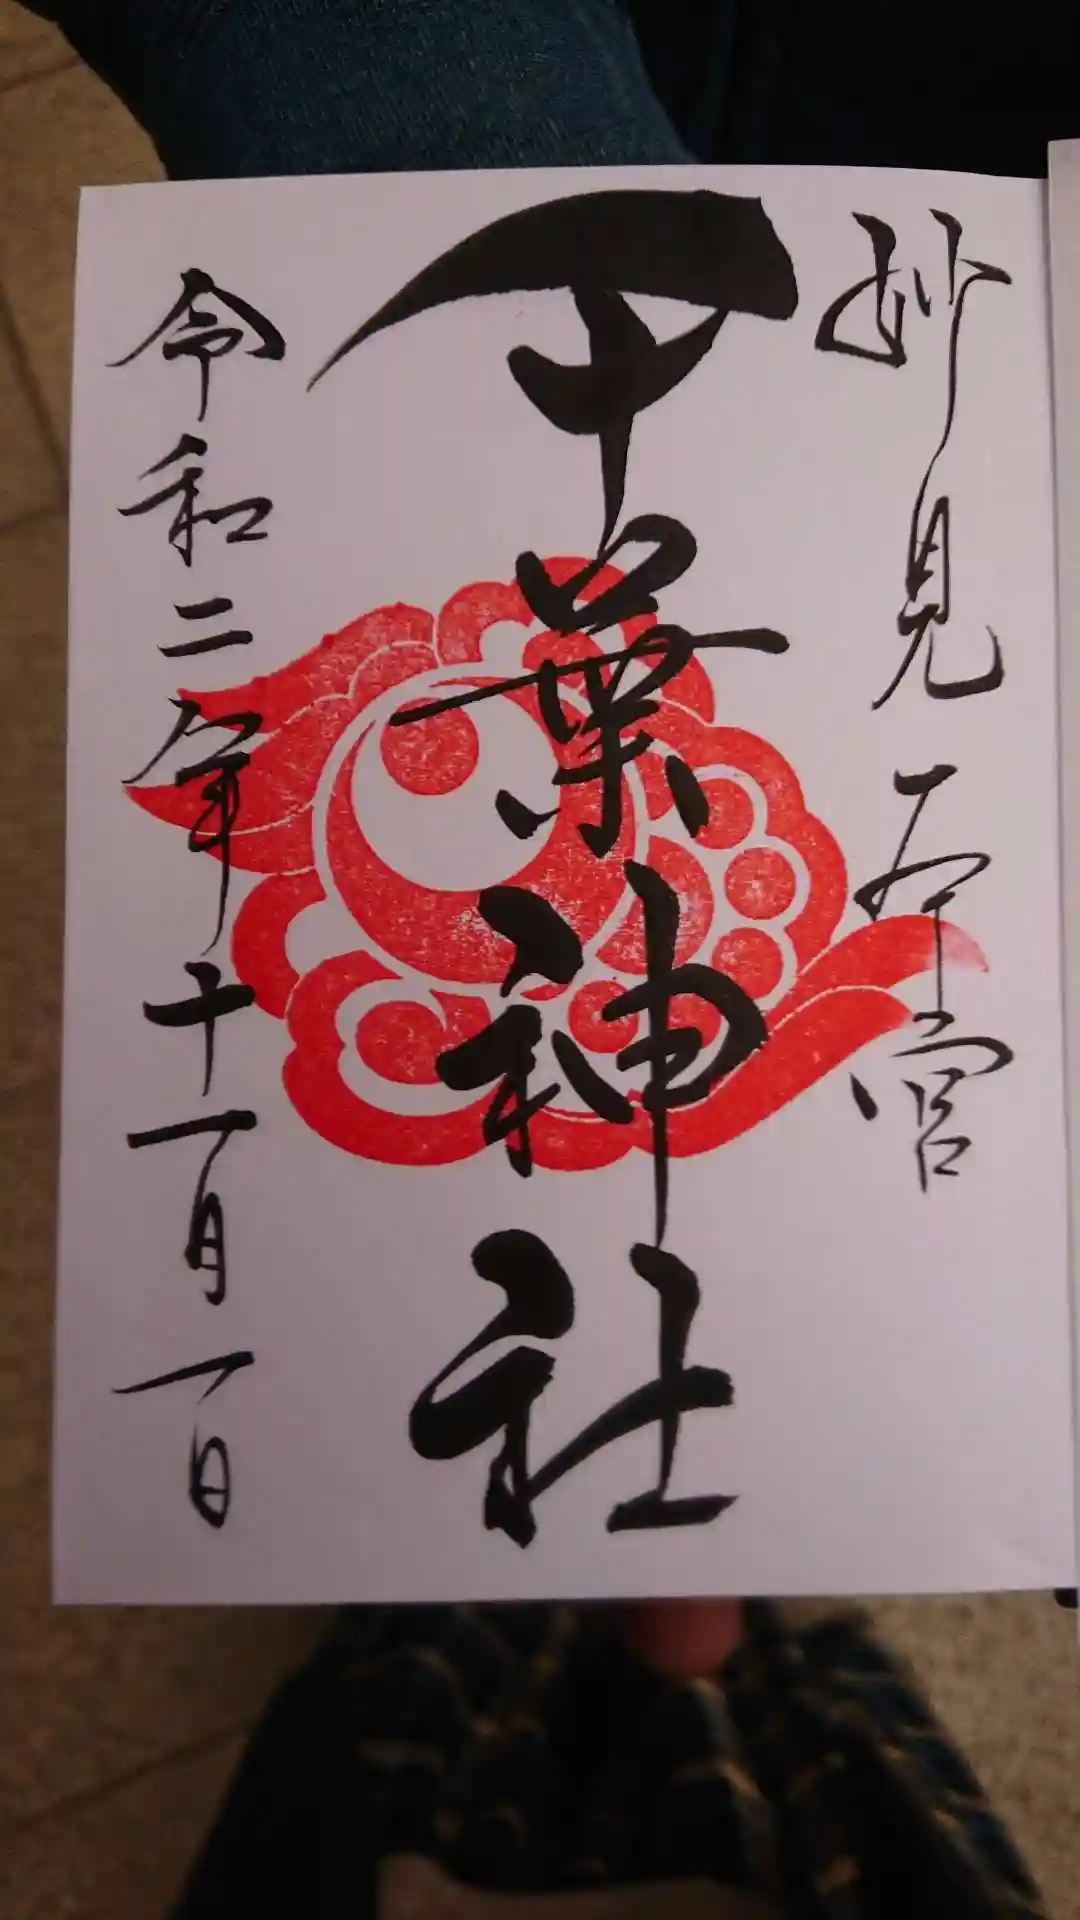 妙見本宮
千葉神社
令和二年十一月一日